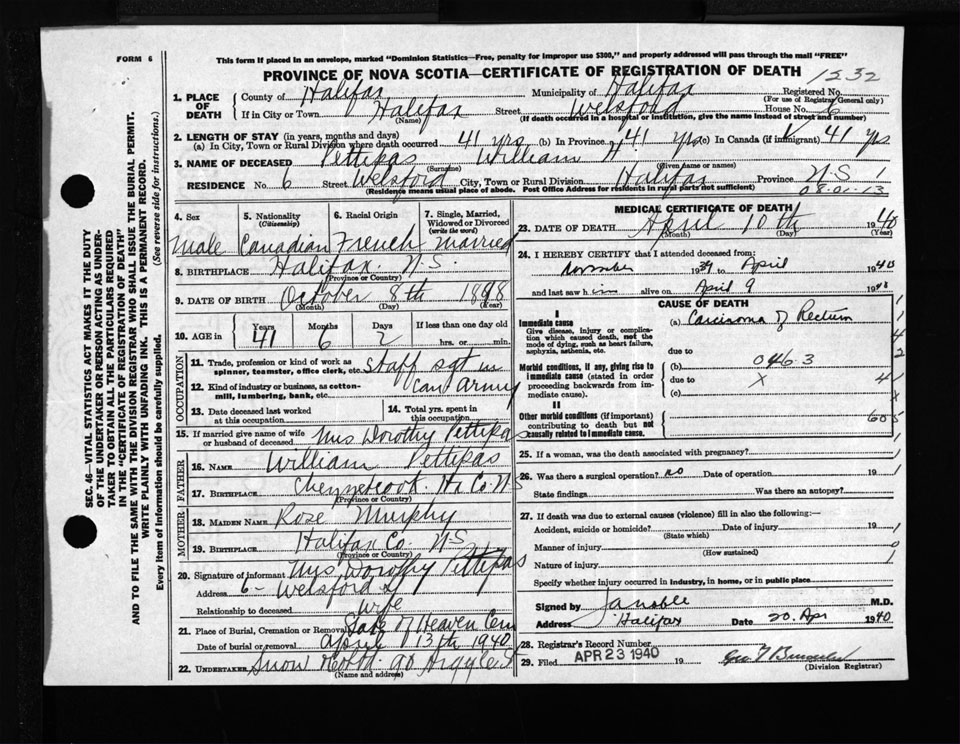 FORM 6
This form if placed in an envelope, marked "Dominion Statistics—Free, penalty for improper use $300," and properly addressed will pass through the mail "FREE"
PROVINCE OF NOVA SCOTIA—CERTIFICATE OF REGISTRATION OF DEATH
1232
1. PLACE OF DEATH
County of Halifax Municipality of Halifax Registered No.
(For use of Registrar General only)
If in City or Town Halifax Street Welsford House No. 6
(Name) (If death occurred in a hospital or institution, give the name instead of street and number)
2. LENGTH OF STAY (in years, months and days)
(a) In City, Town or Rural Division where death occurred 41 yrs (b) In Province 41 yrs (c) In Canada (if immigrant) 41 yrs
3. NAME OF DECEASED Pettipas, William H
(Surname) (Given name or names)
RESIDENCE No. 6 Street Welsford City, Town or Rural Division Halifax Province N.S.
(Residence means usual place of abode. Post Office Address for residents in rural parts not sufficient) 08-01-13
4. Sex
Male
5. Nationality (Citizenship)
Canadian
6. Racial Origin
French
7. Single, Married, Widowed or Divorced (write the word)
married
8. BIRTHPLACE Halifax. N.S.
(Province or Country)
9. DATE OF BIRTH October 8th 1898
(Month) (Day) (Year)
10. AGE in Years 41 Months 6 Days 2 If less than one day old hrs. or min.
OCCUPATION
11. Trade, profession or kind of work as spinner, teamster, office clerk, etc. Staff sgt in
12. Kind of industry or business, as cotton-mill, lumbering, bank, etc. Can Army
13. Date deceased last worked at this occupation
14. Total yrs. spent in this occupation
15. If married give name of wife or husband of deceased Mrs Dorothy Pettipas
FATHER
16. NAME William Pettipas
17. BIRTHPLACE Chezzetcook. Hx Co. N.S
(Province or Country)
MOTHER
18. MAIDEN NAME Rose Murphy
19. BIRTHPLACE Halifax Co. N.S
(Province or Country)
20. Signature of informant Mrs, Dorothy Pettipas
Address 6- Welsford St
Relationship to deceased wife
21. Place of Burial, Cremation or Removal Gate of Heaven Cem
Date of burial or removal April 13th 1940
22. UNDERTAKER Snow & Co Ltd. 90 Argyle St
(Name and address)
MEDICAL CERTIFICATE OF DEATH
23. DATE OF DEATH April 10th 1940
(Month) (Day) (Year)
24. I HEREBY CERTIFY that I attended deceased from:
November 1939 to April 1940
and last saw him alive on April 9 1940
CAUSE OF DEATH
I
Immediate cause
Give disease, injury or complication which caused death, not the mode of dying, such as heart failure, asphyxia, asthenia, etc.
(a) Carcinoma of Rectum
due to
Morbid conditions, if any, giving rise to immediate cause (stated in order proceeding backwards from immediate cause).
(b) 046.3
due to X
(c)
II
Other morbid conditions (if important) contributing to death but not causally related to immediate cause.
605
25. If a woman, was the death associated with pregnancy?
26. Was there a surgical operation? no Date of operation 19
State findings Was there an autopsy?
27. If death was due to external causes (violence) fill in also the following:—
Accident, suicide or homicide? Date of injury 19
(State which)
Manner of injury
(How sustained)
Nature of injury
Specify whether injury occurred in industry, in home, or in public place
Signed by M.D.
Address Halifax Date 20. Apr 1940
28. Registrar's Record Number
29. Filed APR 23 1940 19
(Division Registrar)
SEC. 46—VITAL STATISTICS ACT MAKES IT THE DUTY
OF THE UNDERTAKER OR PERSON ACTING AS UNDERTAKER TO OBTAIN ALL THE PARTICULARS REQUIRED
IN THE "CERTIFICATE OF REGISTRATION OF DEATH"
AND TO FILE THE SAME WITH THE DIVISION REGISTRAR WHO SHALL ISSUE THE BURIAL PERMIT.
WRITE PLAINLY WITH UNFADING INK. THIS IS A PERMANENT RECORD.
Every item of information should be carefully supplied. (See reverse side for instructions.)